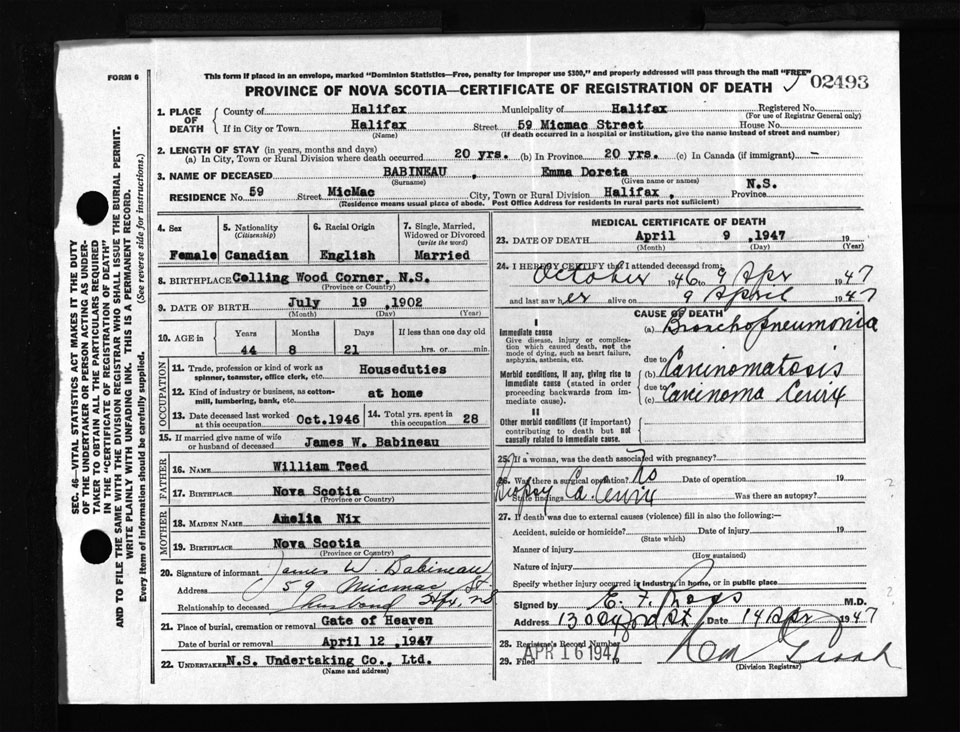 FORM 6
This form if placed in an envelope, marked "Dominion Statistics—Free, penalty for improper use $300," and properly addressed will pass through the mail "FREE"
PROVINCE OF NOVA SCOTIA—CERTIFICATE OF REGISTRATION OF DEATH
02493
SEC. 46—VITAL STATISTICS ACT MAKES IT THE DUTY
OF THE UNDERTAKER OR PERSON ACTING AS UNDER-
TAKER TO OBTAIN ALL THE PARTICULARS REQUIRED
IN THE "CERTIFICATE OF REGISTRATION OF DEATH"
AND TO FILE THE SAME WITH THE DIVISION REGISTRAR WHO SHALL ISSUE THE BURIAL PERMIT.
WRITE PLAINLY WITH UNFADING INK. THIS IS A PERMANENT RECORD.
Every item of Information should be carefully supplied. (See reverse side for instructions.)
1. PLACE OF DEATH
County of Halifax Municipality of Halifax Registered No.
(For use of Registrar General only)
If in City or Town Halifax Street 59 Micmac Street House No.
(Name) (If death occurred in a hospital or institution, give the name instead of street and number)
2. LENGTH OF STAY (in years, months and days)
(a) In City, Town or Rural Division where death occurred 20 yrs. (b) In Province 20 yrs. (c) In Canada (if immigrant) –
3. NAME OF DECEASED BABINEAU , Emma Doreta
(Surname) (Given name or names)
RESIDENCE No 59 Street MicMac City, Town or Rural Division Halifax Province N.S.
(Residence means usual place of abode. Post Office Address for residents in rural parts not sufficient)
4. Sex
Female
5. Nationality
(Citizenship)
Canadian
6. Racial Origin
English
7. Single, Married,
Widowed or Divorced
(write the word)
Married
8. BIRTHPLACE Colling Wood Corner, N.S.
(Province or Country)
9. DATE OF BIRTH July 19 ,1902
(Month) (Day) (Year)
10. AGE in
Years Months Days If less than one day old
44 8 21 hrs. or min.
OCCUPATION
11. Trade, profession or kind of work as
spinner, teamster, office clerk, etc. Houseduties
12. Kind of industry or business, as cotton-
mill, lumbering, bank, etc. at home
13. Date deceased last worked
at this occupation Oct.1946
14. Total yrs. spent in
this occupation 28
15. If married give name of wife
or husband of deceased James W. Babineau
FATHER
16. NAME William Teed
17. BIRTHPLACE Nova Scotia
(Province or Country)
MOTHER
18. MAIDEN NAME Amelia Nix
19. BIRTHPLACE Nova Scotia
(Province or Country)
20. Signature of informant James W. Babineau
Address 59 Micmac St.
Relationship to deceased husband Hfx. NS
21. Place of burial, cremation or removal Gate of Heaven
Date of burial or removal April 12 ,1947
22. UNDERTAKER N.S. Undertaking Co., Ltd.
(Name and address)
MEDICAL CERTIFICATE OF DEATH
23. DATE OF DEATH April 9 ,1947 19
(Month) (Day) (Year)
24. I HEREBY CERTIFY that I attended deceased from:
October 1946 to 9 Apr 1947
and last saw her alive on 9 April 1947
CAUSE OF DEATH
I
Immediate cause
Give disease, injury or complica-
tion which caused death, not the
mode of dying, such as heart failure,
asphyxia, asthenia, etc.
(a) Bronchopneumonia
due to
Morbid conditions, if any, giving rise to
immediate cause (stated in order
proceeding backwards from im-
mediate cause).
(b) Carcinomatosis
due to
(c) Carcinoma Cervix
II
Other morbid conditions (if important)
contributing to death but not
causally related to immediate cause.
25. If a woman, was the death associated with pregnancy?
26. Was there a surgical operation? No Date of operation 19
State findings Biopsy Ca. Cervix Was there an autopsy?
27. If death was due to external causes (violence) fill in also the following:—
Accident, suicide or homicide? Date of injury 19
(State which)
Manner of injury
(How sustained)
Nature of injury
Specify whether injury occurred in industry, in home, or in public place
Signed by E. F. Ross M.D.
Address 13 Oxford St. Date 14 Apr 1947
28. Registrar's Record Number
29. Filed APR 16 1947
(Division Registrar)